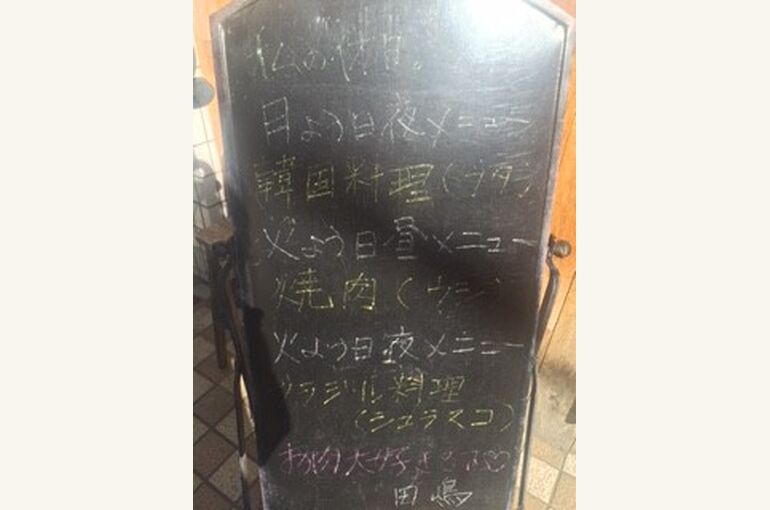 私の休日。
日よう日夜メニュー
韓国料理(ブタ)
火よう日昼メニュー
焼肉(ウシ)
火よう日夜メニュー
ブラジル料理
(シュラスコ)
お肉大好きです♡
田嶋